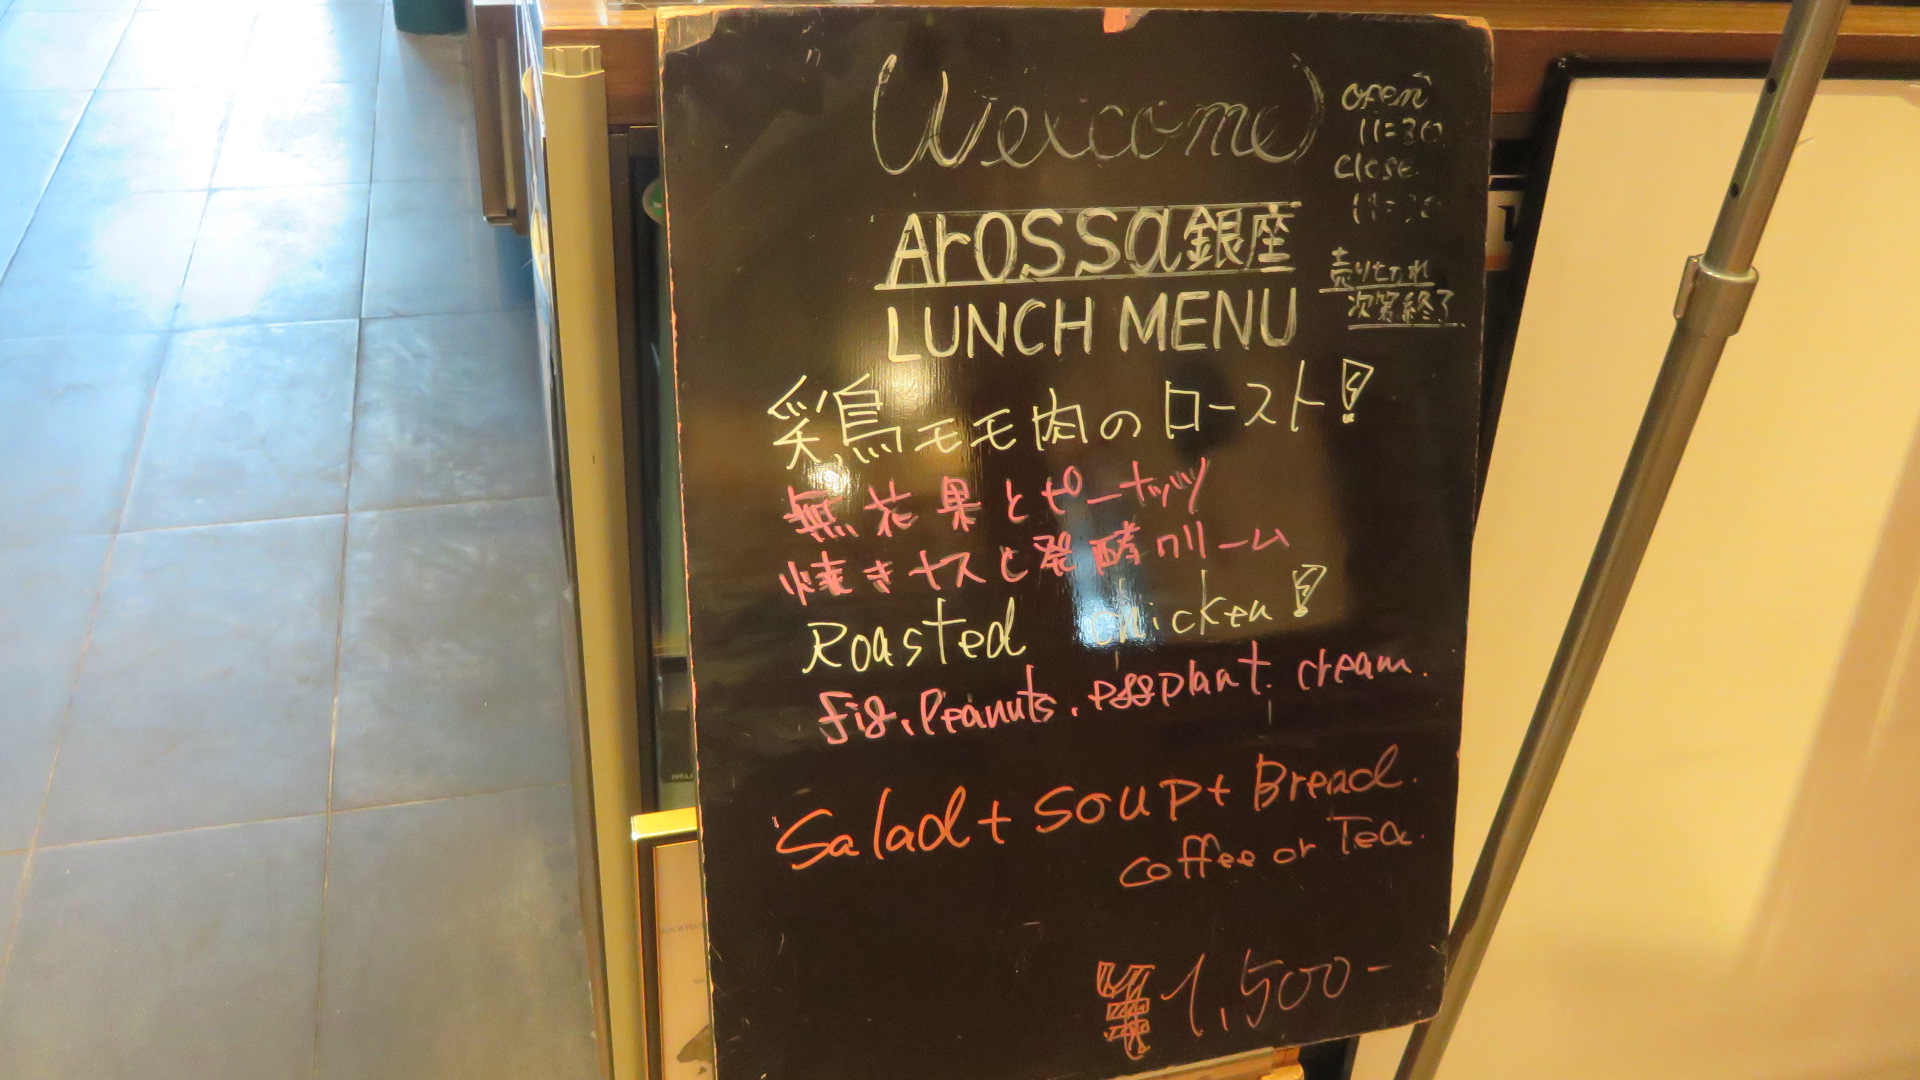 Welcome
open
11=30
close
Arossa銀座
LUNCH MENU
売り切れ
次第終了
鶏モモ肉のロースト!
無花果とピーナッツ
焼きナスと発酵クリーム
Roasted chicken!
fig. Peanuts. eggplant. cream.
Salad + Soup + Bread.
Coffee or Tea.
¥1,500-